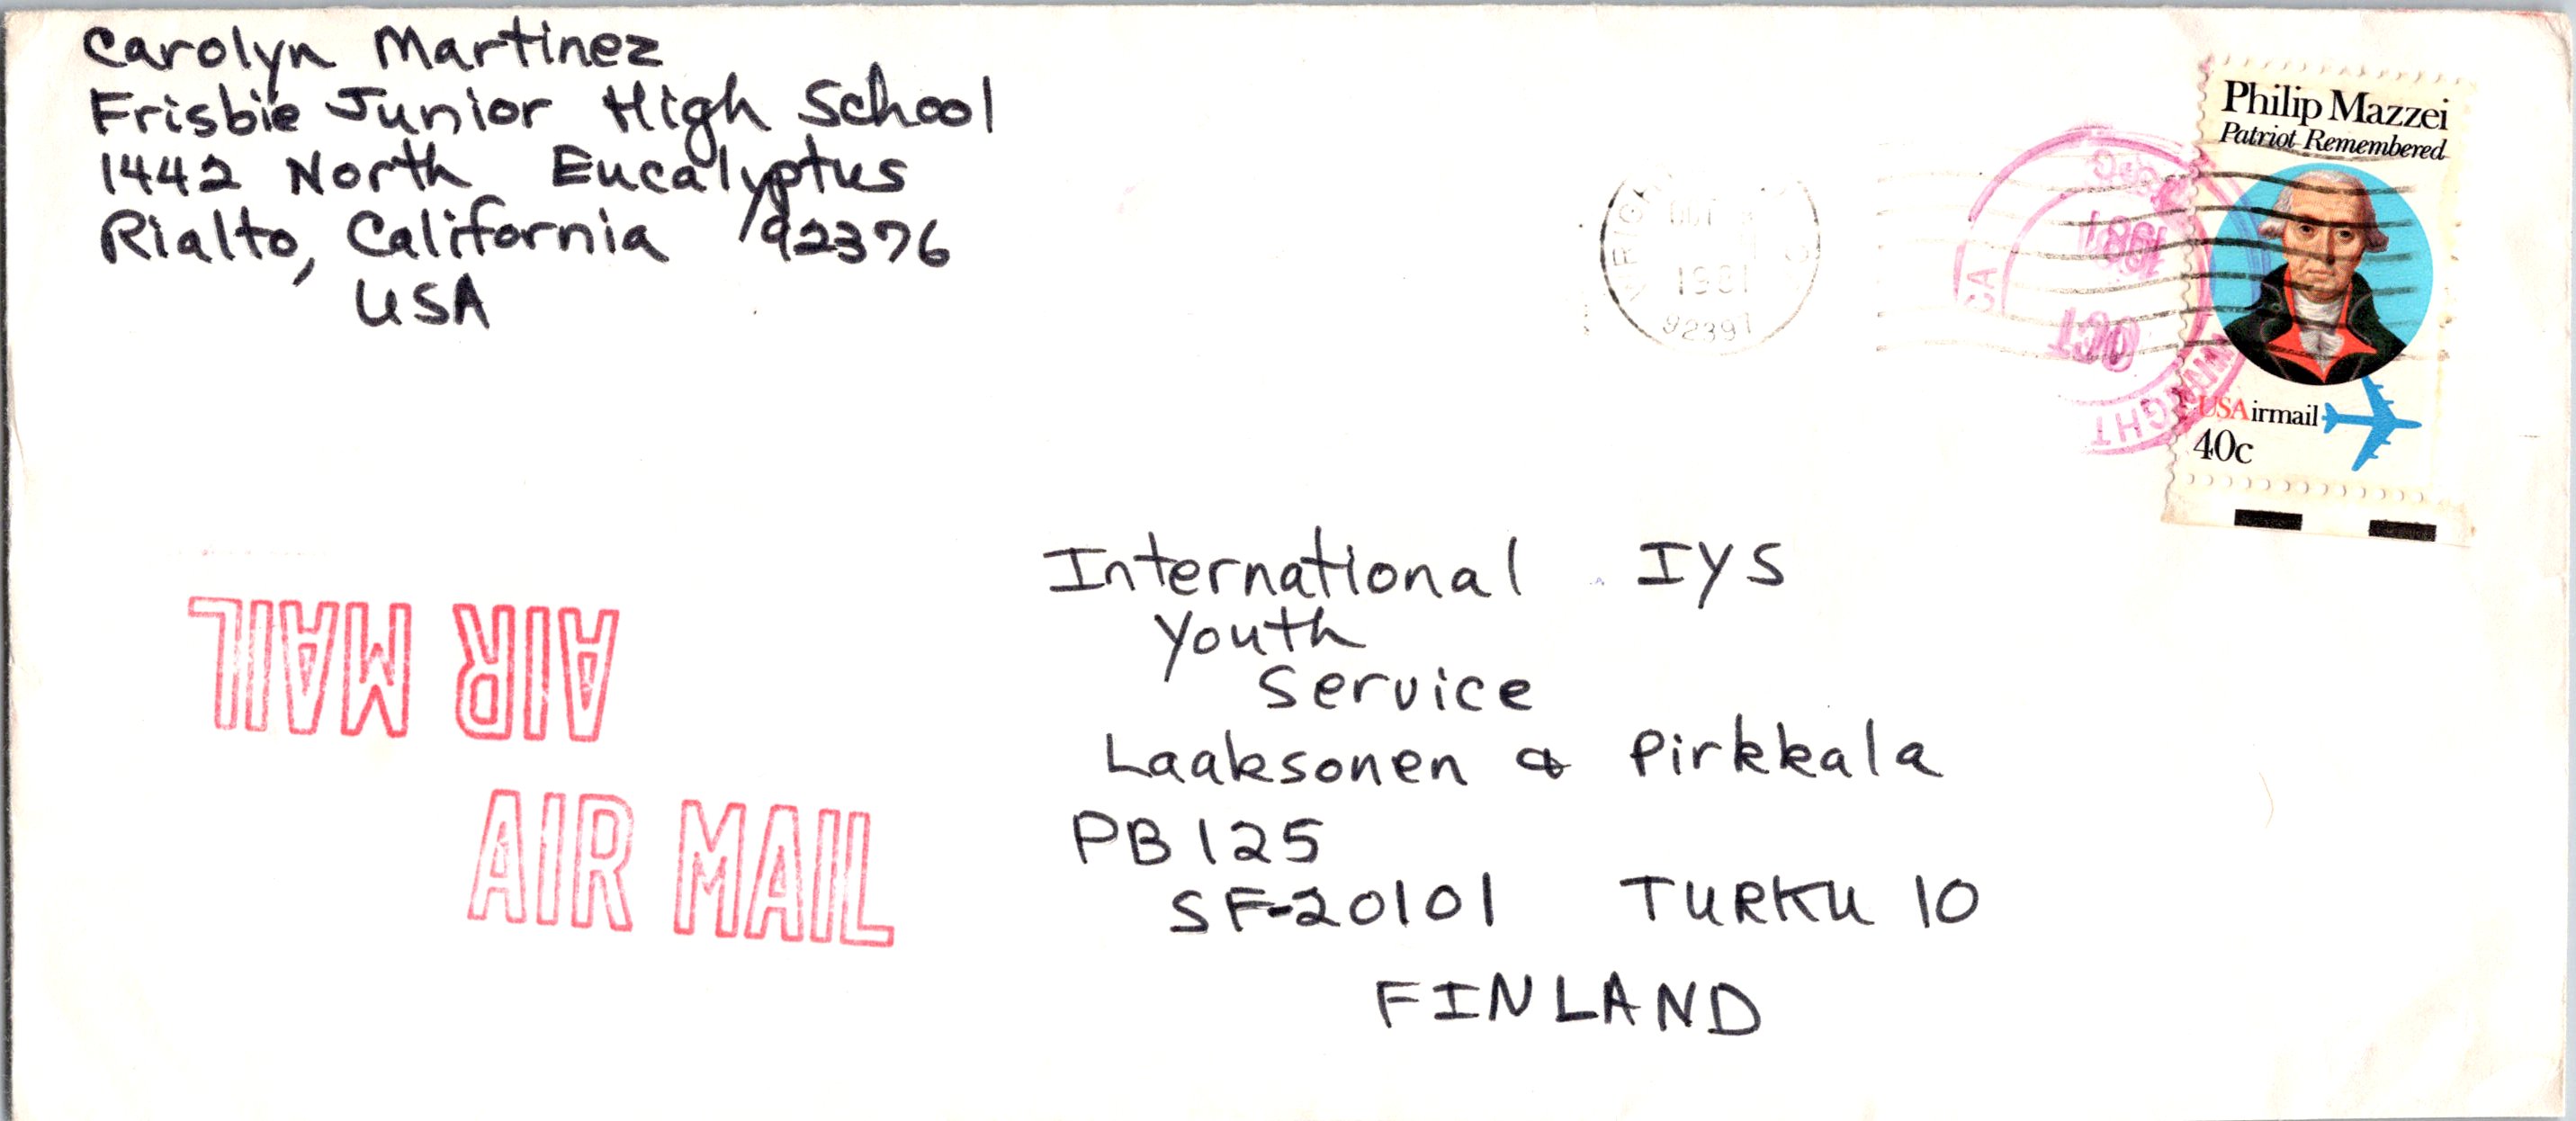 Carolyn Martinez
Frisbie Junior High School
1442 North Eucalyptus
Rialto, California 92376
USA
Philip Mazzei
Patriot Remembered
USAirmail
40c
1981
92397
CA
1981
OCT
WRIGHT
AIR MAIL
AIR MAIL
International IYS
Youth
Service
Laaksonen & Pirkkala
PB 125
SF-20101 TURKU 10
FINLAND